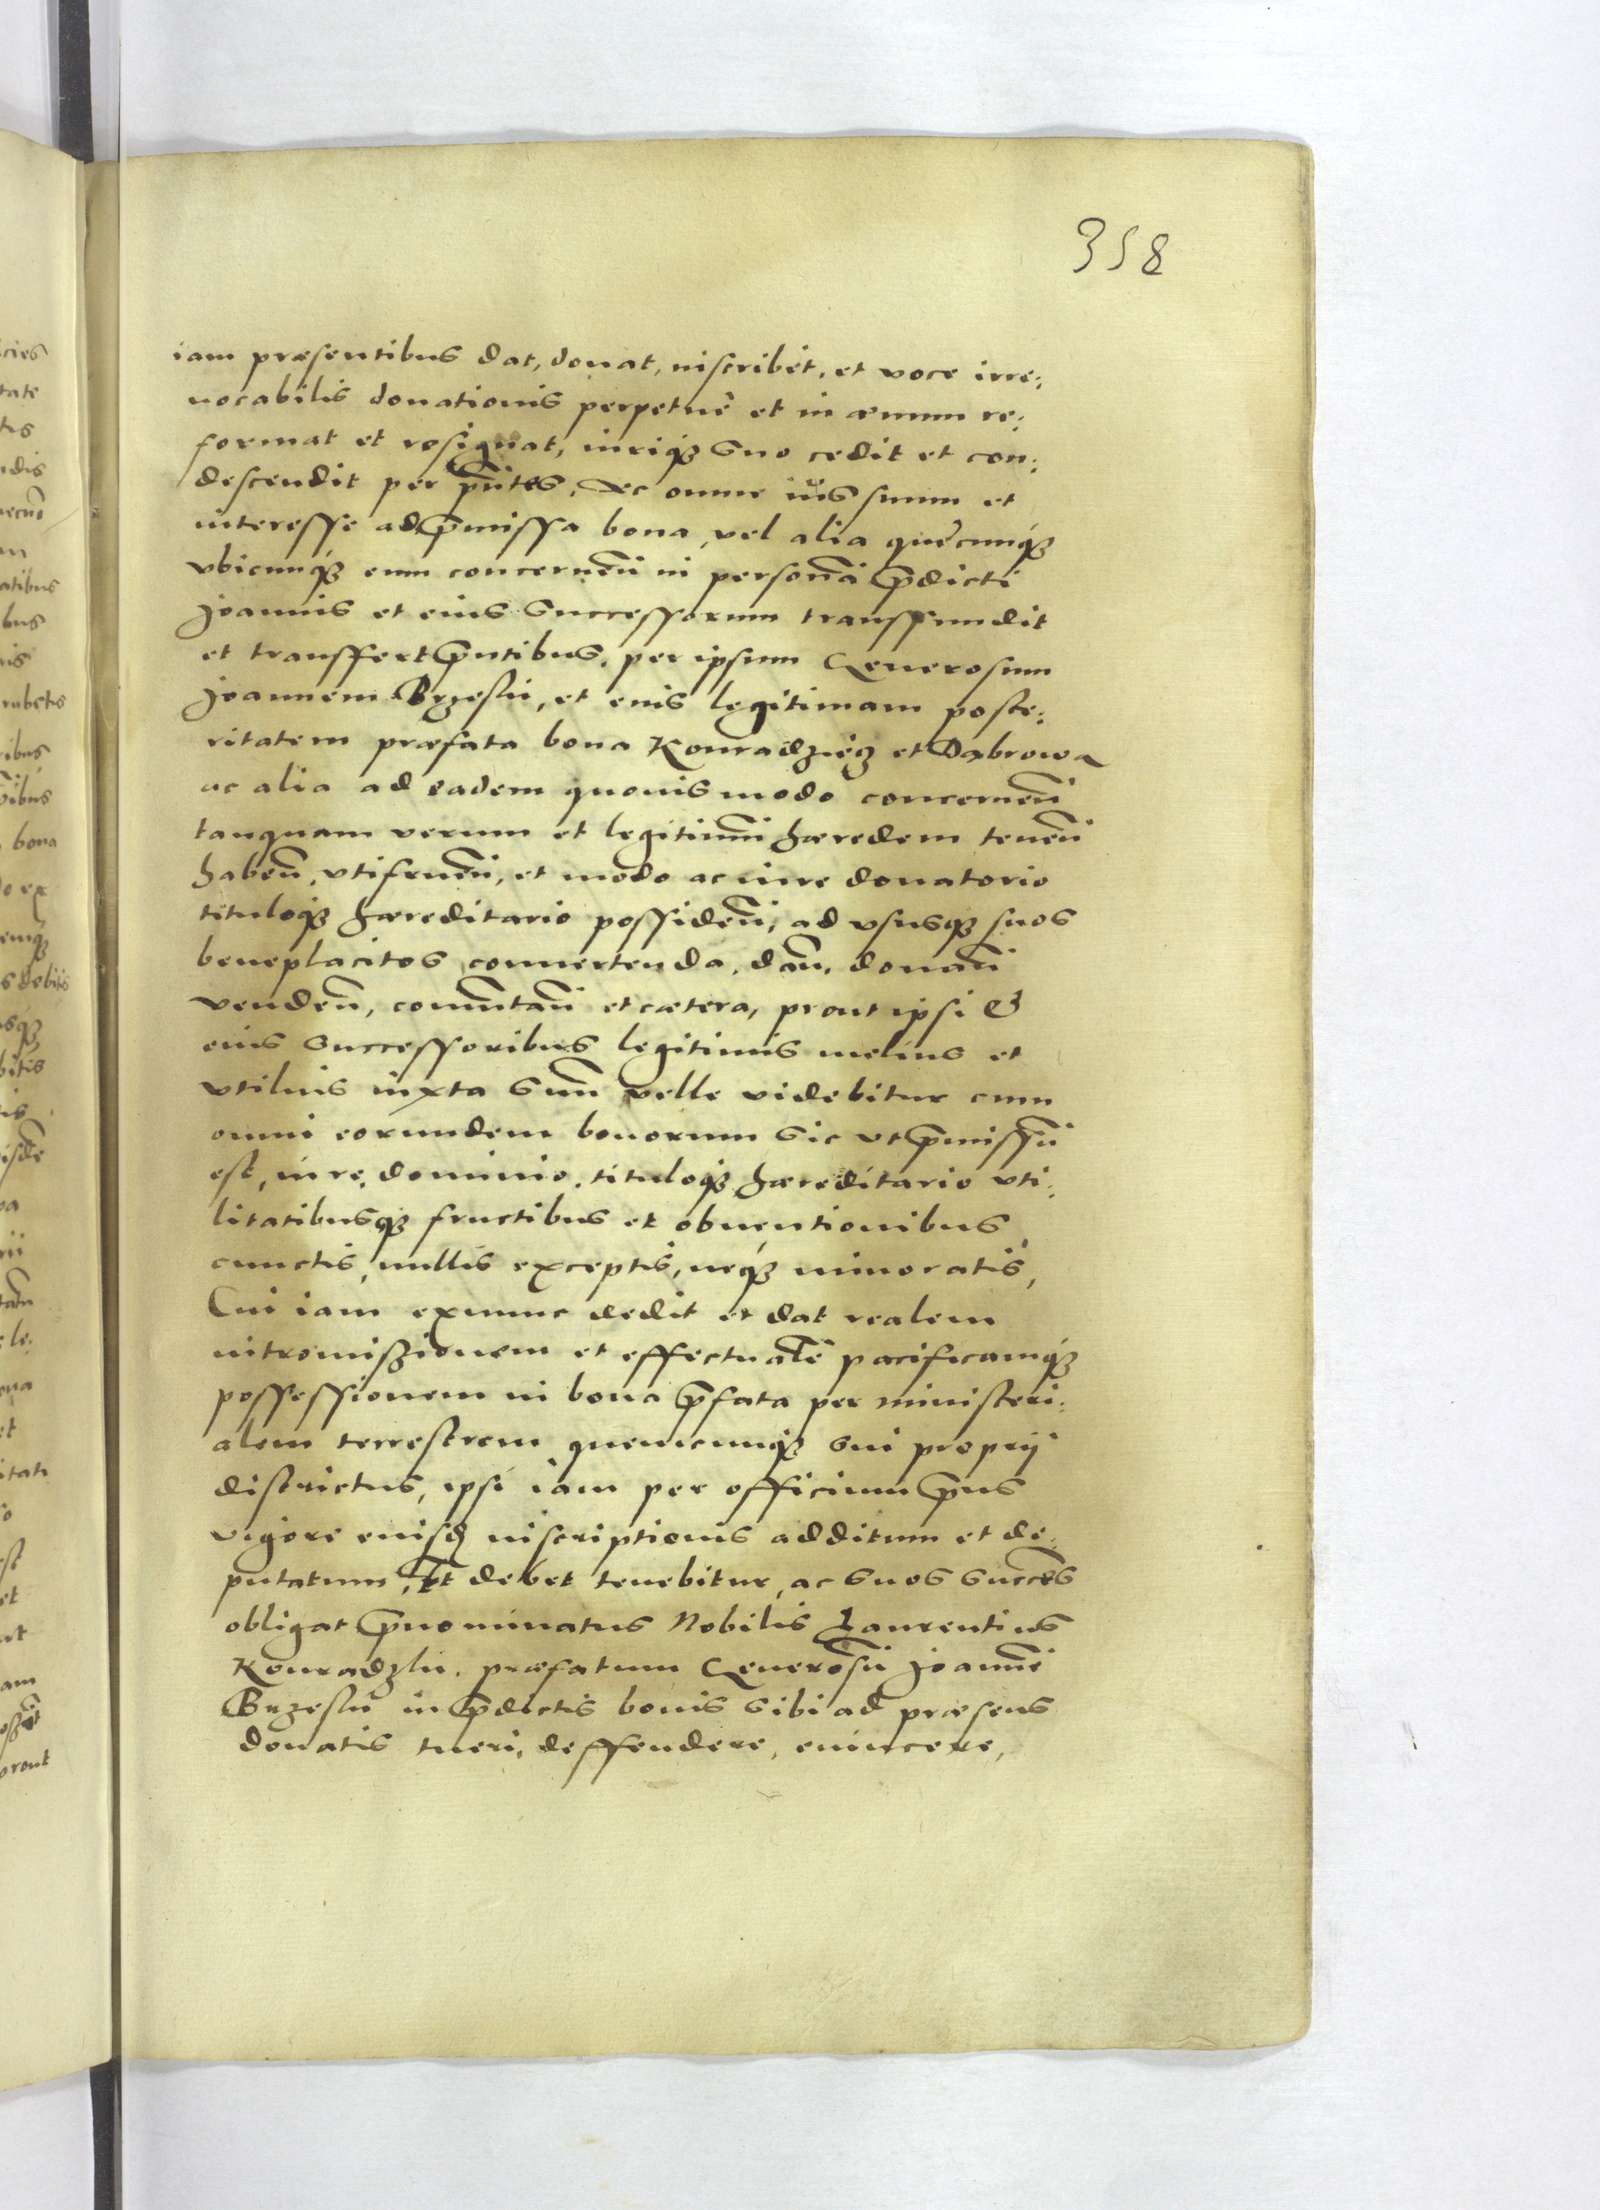 358
iam præsentibus dat, donat, inscribit, et voce irre:
uocabilis donationis perpetuè et in æuum re:
format et resignat, iuriq3 suo cedit et con:
descendit per pñtes, Ac omne ius suum et
interesse ad p̃missa bona, vel alia quęcunq3
vbicunq3 eum concerneñ in personã p̃dicti
Joannis et eius Successorum transfundit
et transffert p̃ntibus, per ipsum Generosum
Joannem Brzeski, et eius legitimam poste:
ritatem præfata bona Konradzięcz et Dąbrowa
ac alia ad eadem quouismodo concerneñ
tanquam verum et legitimũ hæredem teneñ
habeñ, vtifrueñ, et modo ac iure donatorio
tituloq3 hæreditario possideñ, ad vsusq3 suos
beneplacitos conuertenda, dañ, donañ
vendeñ, comutañ et cætera, prout ipsi &
eius Successoribus legitimis melius et
vtilius iuxta Suũ velle videbitur cum
omni eorundem bonorum Sic vt p̃missũ
est, iure, dominio, tituloq3 hæreditario vti:
litatibusq3 fructibus et obuentionibus
cunctis, nullis exceptis, neq3 minoratis,
Cui iam exnunc dedit et dat realem
intromissionem et effectualẽ pacificamq3
possessionem in bona p̃fata per ministeri:
alem terrestrem quemcunq3 Sui proprij
districtus, ipsi iam per officium p̃ns
vigore eiusd inscriptionis additum et de:
putatum, Et debet tenebitur, ac Suos Succẽs
obligat p̃nominatus Nobilis Laurentius
Konradzki, præfatum Generosũ Joannẽ
Brzeski in p̃dictis bonis Sibi ad præsens
donatis tueri, deffendere, euincere,